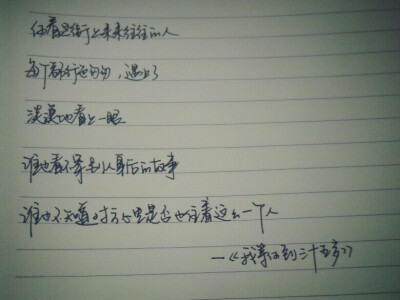 你看这街上来来往往的人
每个都行色匆匆,遇上了
淡漠地看上一眼
谁也看不穿别人身后的故事
谁也不知道对方心里是否也住着这么一个人
—《我等你到三十五岁》